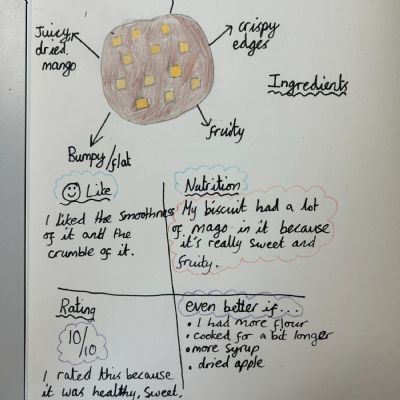 Juicy,
dried
mango
crispy
edges
Ingredients
fruity
Bumpy/flat
Like
I liked the smoothness
of it and the
crumble of it.
Nutrition
My biscuit had a lot
of mago in it because
it's really sweet and
fruity.
Rating
10/10
I rated this because
it was healthy, sweet,
even better if...
• I had more flour
• cooked for a bit longer
• more syrup
• dried apple